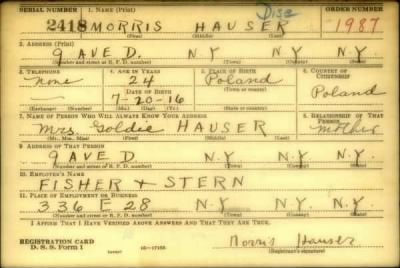 SERIAL NUMBER 1. NAME (Print) Disc ORDER NUMBER
2418 MORRIS HAUSER 1987
(First) (Middle) (Last)
2. ADDRESS (Print)
9 AVE D. N Y N Y. N.Y.
(Number and street or R. F. D. number) (Town) (County) (State)
3. TELEPHONE 4. AGE IN YEARS 5. PLACE OF BIRTH 6. COUNTRY OF CITIZENSHIP
None 24 Poland
DATE OF BIRTH
— 7-20-16 Poland
(Exchange) (Number) (Mo.) (Day) (Yr.) (State or country)
7. NAME OF PERSON WHO WILL ALWAYS KNOW YOUR ADDRESS 8. RELATIONSHIP OF THAT PERSON
Mrs. Goldie HAUSER mother
(Mr., Mrs., Miss) (First) (Middle) (Last)
9. ADDRESS OF THAT PERSON
9 AVE D. N.Y N.Y. N.Y.
(Number and street or R. F. D. number) (Town) (County) (State)
10. EMPLOYER'S NAME
FISHER + STERN
11. PLACE OF EMPLOYMENT OR BUSINESS
336 E 28 N.Y N.Y. N.Y.
(Number and street or R. F. D. number) (Town) (County) (State)
I AFFIRM THAT I HAVE VERIFIED ABOVE ANSWERS AND THAT THEY ARE TRUE.
REGISTRATION CARD
D. S. S. Form 1 Morris Hauser
(Registrant's signature)